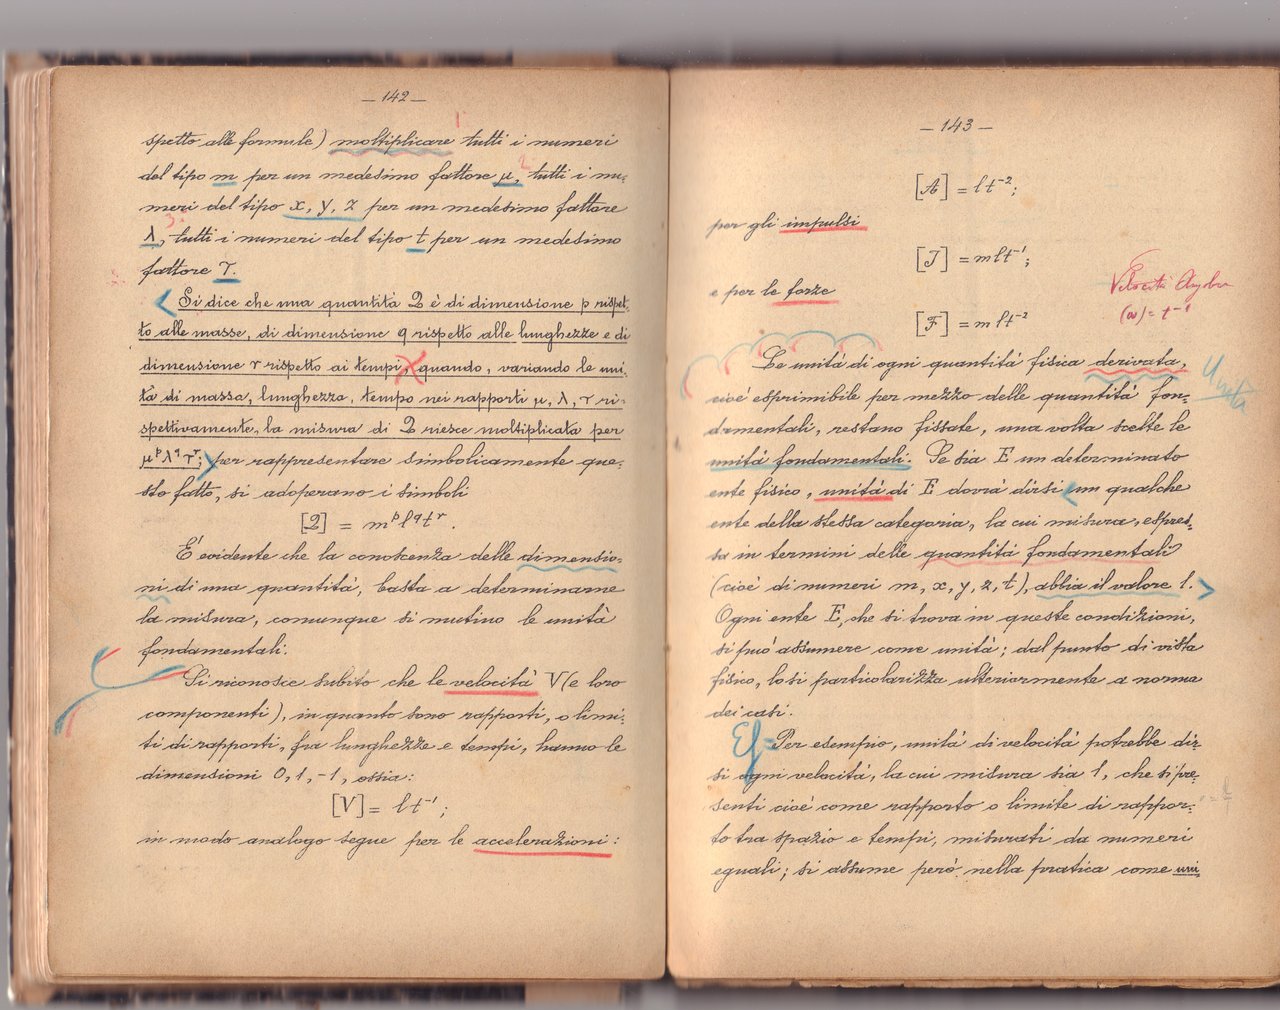 — 142 —
spetto alle formule) moltiplicare tutti i numeri
del tipo m per un medesimo fattore μ, tutti i nu-
meri del tipo x, y, z per un medesimo fattore
λ, tutti i numeri del tipo t per un medesimo
fattore τ.
Si dice che una quantità Q è di dimensione p rispet-
to alle masse, di dimensione q rispetto alle lunghezze e di
dimensione r rispetto ai tempi, quando, variando le uni-
tà di massa, lunghezza, tempo nei rapporti μ, λ, τ ri-
spettivamente, la misura di Q riesce moltiplicata per
μᵖλᑫτʳ; per rappresentare simbolicamente que-
sto fatto, si adoperano i simboli
[Q] = mᵖlᑫtʳ.
E' evidente che la conoscenza delle dimensio-
ni di una quantità, basta a determinarne
la misura, comunque si mutino le unità
fondamentali.
Si riconosce subito che le velocità V (e loro
componenti), in quanto sono rapporti, o limi-
ti di rapporti, fra lunghezze e tempi, hanno le
dimensioni 0, 1, -1, ossia:
[V] = lt⁻¹;
in modo analogo segue per le accelerazioni:
— 143 —
[A] = lt⁻²;
per gli impulsi
[I] = mlt⁻¹;
e per le forze
[F] = mlt⁻²
Velocità Ang
(ω) = t⁻¹
Le unità di ogni quantità fisica derivata,
Unità
cioè esprimibile per mezzo delle quantità fon-
damentali, restano fissate, una volta scelte le
unità fondamentali. Se sia E un determinato
ente fisico, unità di E dovrà dirsi un qualche
ente della stessa categoria, la cui misura, espres-
sa in termini delle quantità fondamentali
(cioè di numeri m, x, y, z, t), abbia il valore 1.
Ogni ente E, che si trova in queste condizioni,
si può assumere come unità; dal punto di vista
fisico, lo si particolarizza ulteriormente a norma
dei casi.
Es = Per esempio, unità di velocità potrebbe dir-
si ogni velocità, la cui misura sia 1, che si pre-
senti cioè come rapporto o limite di rappor-
to tra spazio e tempi, misurati da numeri
eguali; si assume però nella pratica come uni-